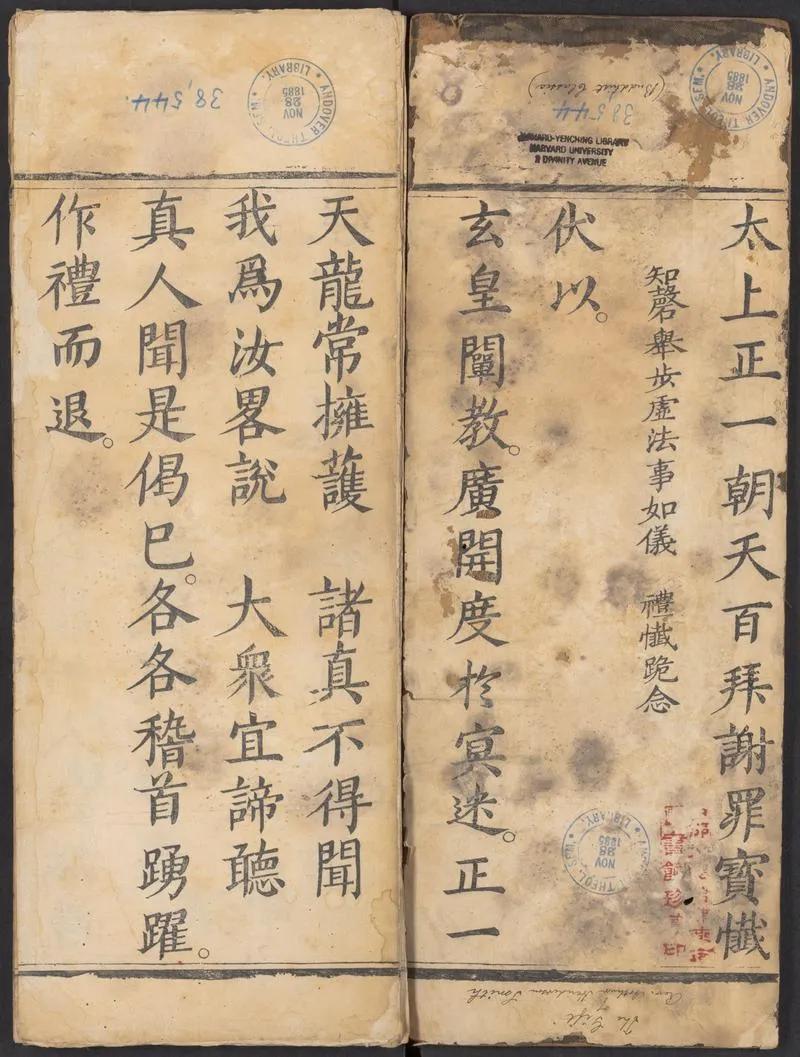 太上正一朝天百拜謝罪寶懺
知磬舉步虛法事如儀 禮懺跪念
伏以。
玄皇闡教。廣開度於冥迷。正一
天龍常擁護 諸真不得聞
我爲汝畧說 大衆宜諦聽
真人聞是偈巳。各各稽首踴躍。
作禮而退。
ANDOVER THEOL. SEM. LIBRARY.
NOV
28
1885
38,544
(Buddhist Classics)
HARVARD-YENCHING LIBRARY
HARVARD UNIVERSITY
2 DIVINITY AVENUE
THEOL. SEM. LIBRARY.
NOV
28
1885
The Gift
of
Rev. Arthur Henderson Smith
ANDOVER THEOL. SEM. LIBRARY.
NOV
28
1885
38,544.